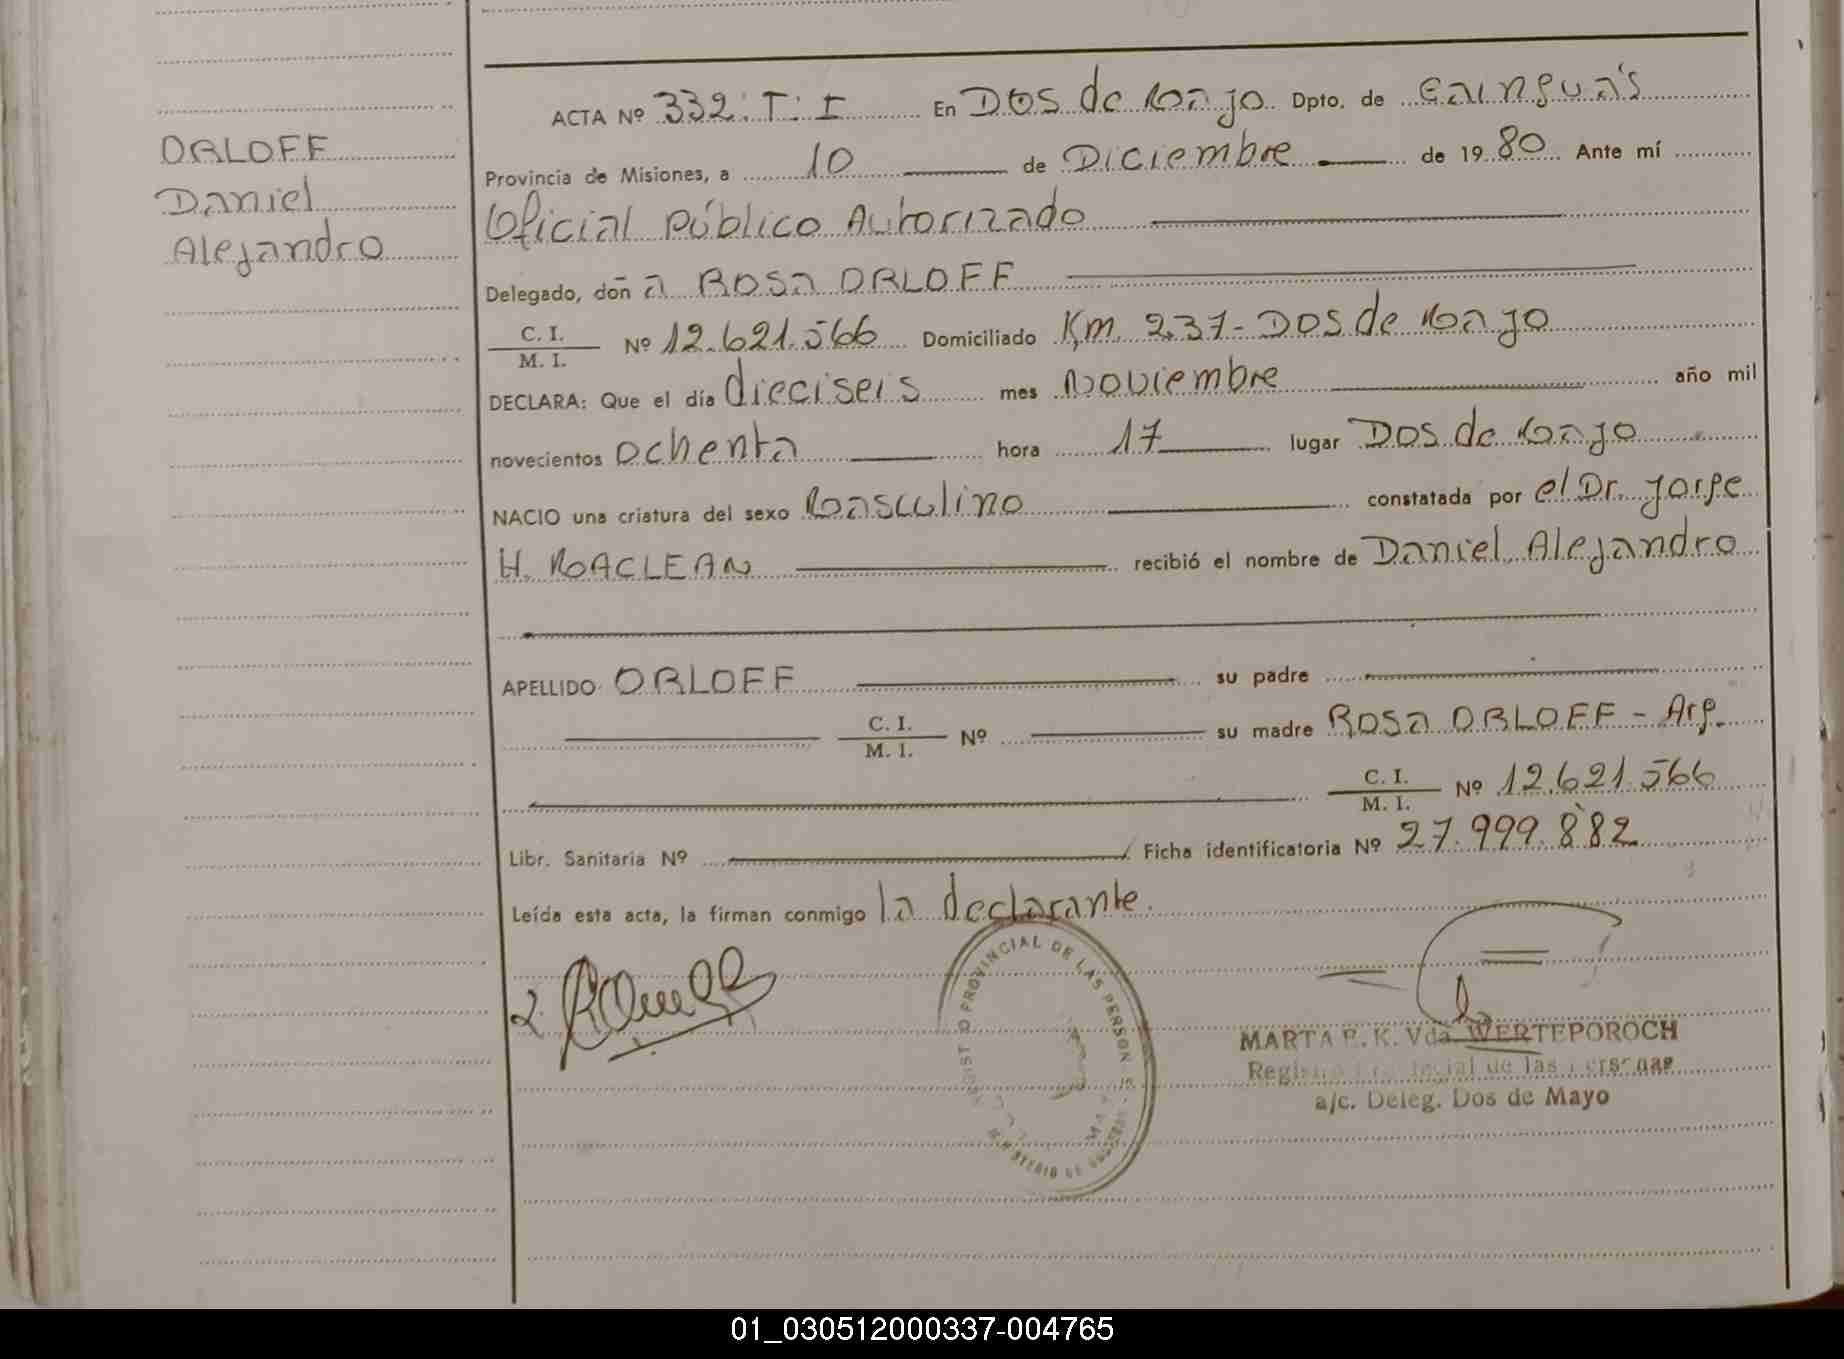 ORLOFF
Daniel
Alejandro
ACTA Nº 332:T:I En Dos de Mayo Dpto. de Cainguás
Provincia de Misiones, a 10 de Diciembre de 1980 Ante mí
Oficial Público Autorizado
Delegado, doñ a ROSA ORLOFF
C. I.
M. I. Nº 12.621.566 Domiciliado Km. 237-Dos de Mayo
DECLARA: Que el día dieciseis mes Noviembre año mil
novecientos ochenta hora 17 lugar Dos de Mayo
NACIO una criatura del sexo Masculino constatada por el Dr. Jorge
H. MACLEAN recibió el nombre de Daniel Alejandro
APELLIDO ORLOFF su padre
C. I.
M. I. Nº su madre ROSA ORLOFF - Arg.
C. I.
M. I. Nº 12.621.566
Libr. Sanitaria Nº Ficha identificatoria Nº 27.999.882
Leída esta acta, la firman conmigo la declarante.
REGISTRO PROVINCIAL DE LAS PERSONAS
MINISTERIO DE GOBIERNO
MARTA P. K. Vda. WERTEPOROCH
Registro Provincial de las Personas
a/c. Deleg. Dos de Mayo
01_030512000337-004765